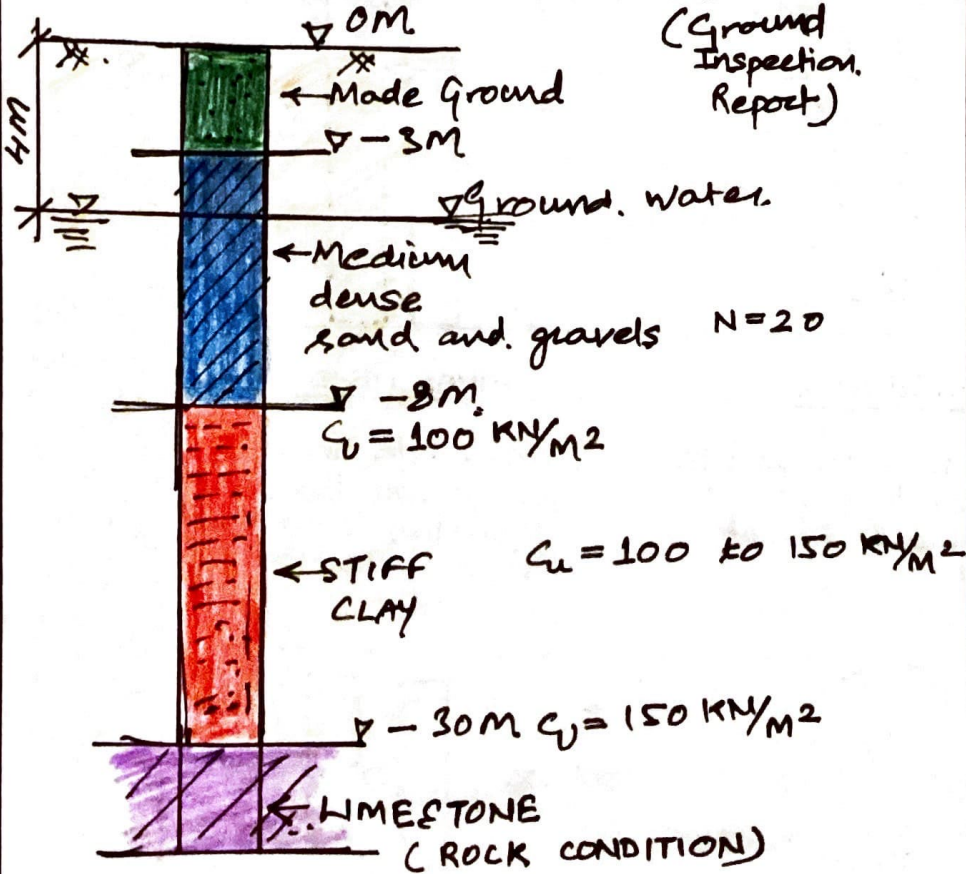 0M
(Ground
Inspection.
Report)
Made Ground
-3M
4M
Ground. water.
Medium
dense
sand and. gravels N=20
-8m.
Cu = 100 KN/M2
Cu = 100 to 150 KN/M2
STIFF
CLAY
-30M Cu = 150 KN/M2
LIMESTONE
(ROCK CONDITION)